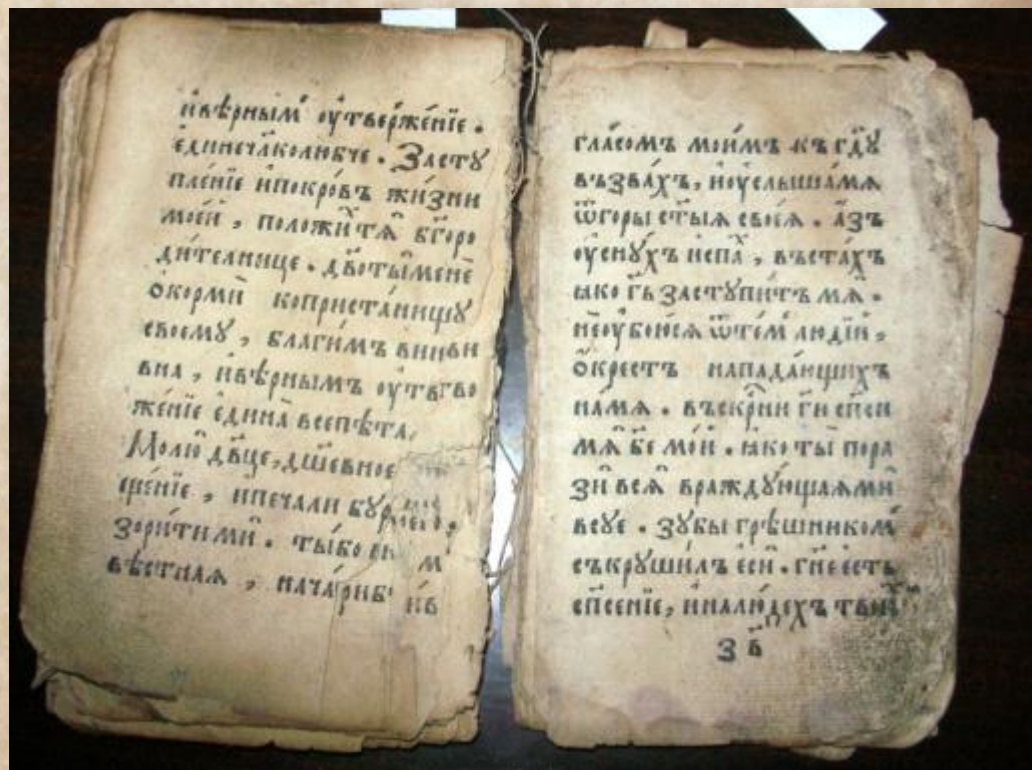 и҆вѣ́рным̾ ᲂу҆твержє́нїе .
є҆ди́нечл҃колю́бче . Засту
пле́нїе и҆покро́въ жи́зни
моє́й , положи́хтѧ̀ бг҃оро
ди́телнице . дв҃оты̀мене̑
ѡ҆корми̑ копристáнищу
своемꙋ̀ , благи́мъ вино́в
на , и҆вѣ́рнымъ ᲂу҆тв
же́нїе є҆ди́на всепѣ́таѧ
Молю̀ дв҃це, дш҃евное
ще́нїе , ипечали бу
зори́тими̑ . ты́бо
вѣ́стнаѧ , нача́
гла́сомъ мои́мъ къ гдⷭ҇ꙋ
възва́хъ , и҆ᲂу҆слы́шамѧ
ѿгоры ст҃ы́ѧ своеѧ̀ . А҆́зъ
ᲂу҆снꙋ́хъ испа́хⷯ , въста́хъ
ꙗ҆ко гь҃ застꙋ́питъ мѧ̀ .
неᲂу҆бою́сѧ ѿте́мⷨ людїи̑ ,
ѻ҆́крестъ напада́ющихъ
на́мѧ . въскр҃нїи гн҃ сп҃си
мѧ̀ бе҃ мо́й . ꙗ҆коты̀ пора
зи̑ всѧ̀ враждꙋ́ющаѧми̑
всꙋе . Зꙋбы грѣ́шникомⷨ
съкрꙋши́лъ є҆си̑ . гн҃е є҆сть
сп҃се́нїе, и҆налю́дехъ твои́хⷯ
з в҃